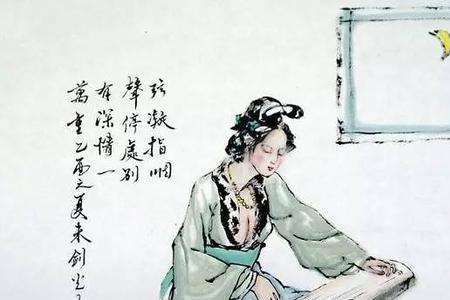 弦凝指咽
声停處别
有深情一
萬重乙酉之夏朱剑光